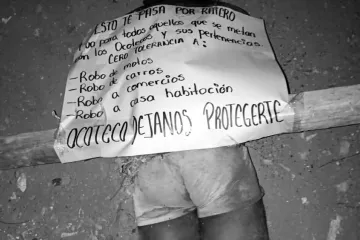 ESTO TE PASA POR RATERO
va para todos aquellos que se metan
con los Ocotecos y sus pertenencias.
CERO TOLERANCIA A:
-Robo de motos
-Robo de carros
-Robo a comercios
-Robo a casa habitación
OCOTECO DEJANOS PROTEGERTE